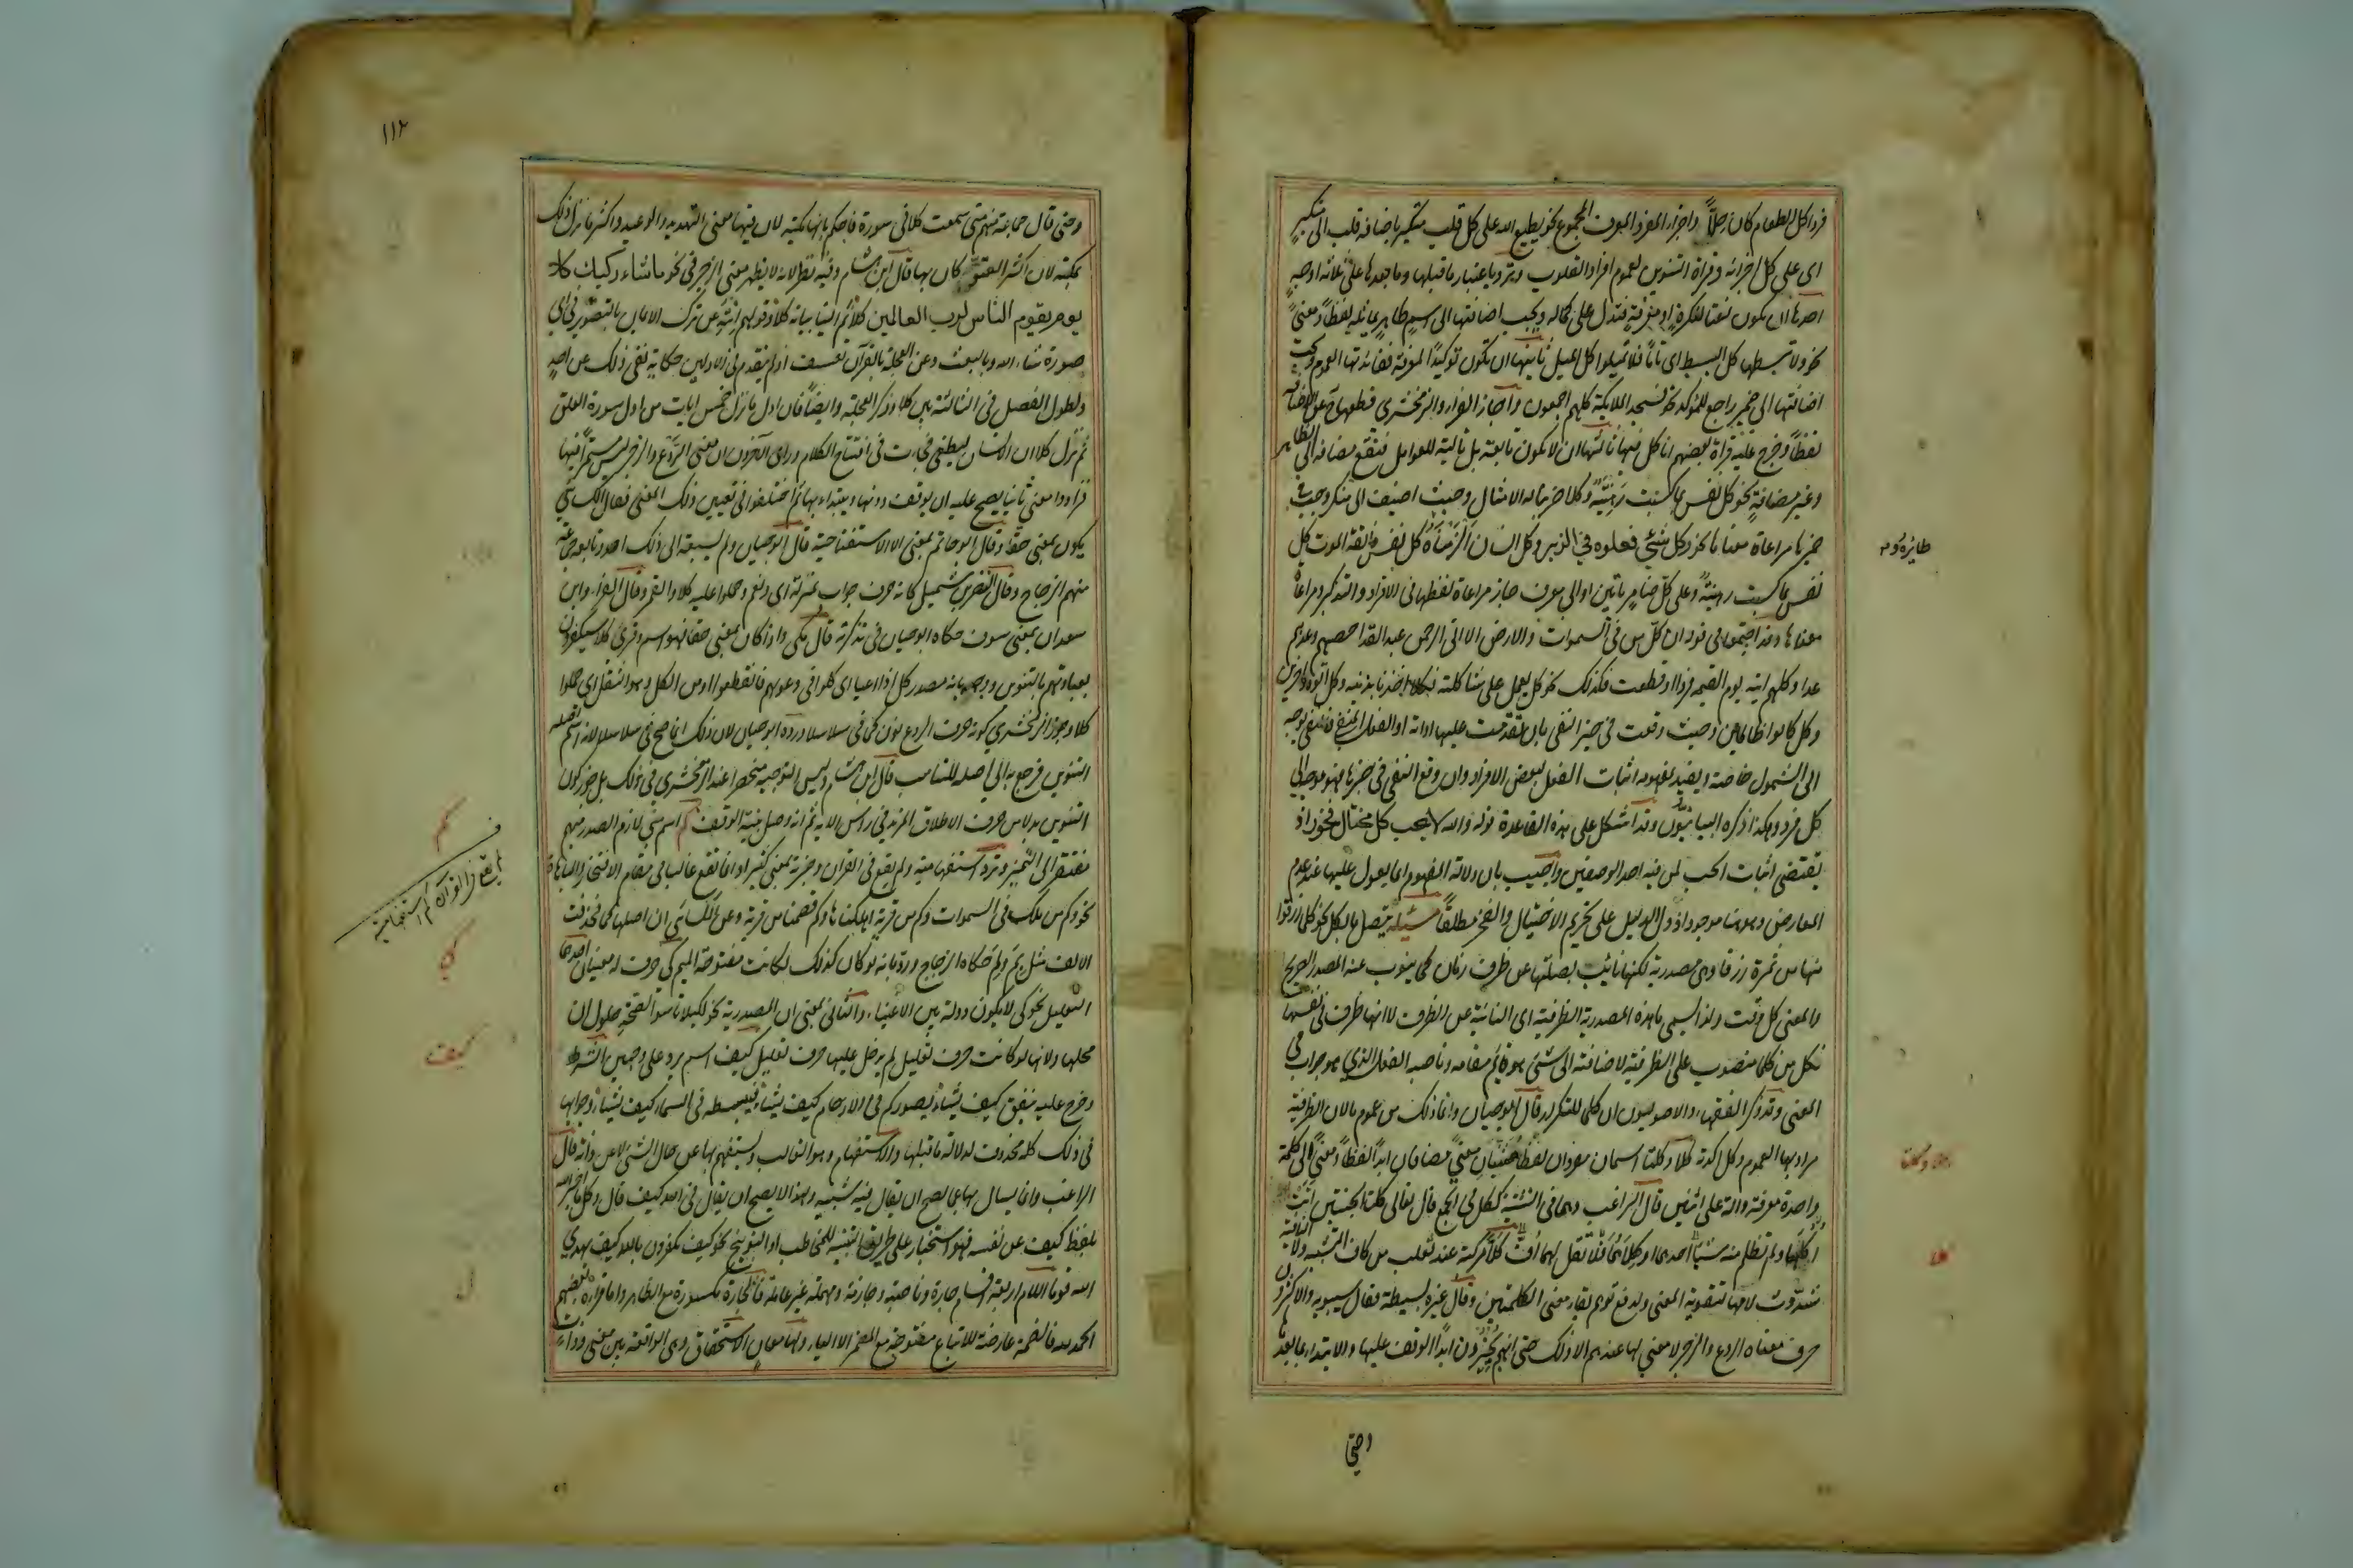 فرد اكل الطعام كان حلاً واجزاء المفرد المعرف المجموع نحو يطبع الله على كل قلب متكبر باضافة قلب الى متكبر
اى على كل اجزائه وقراة التنوين لعموم افراد القلوب وترد باعتبار ما قبلها وما بعدها على ثلاثة اوجه
احدها ان يكون نعتا لنكرة او معرفة فتدل على كماله ويجب اضافتها الى اسم ظاهر يماثله لفظاً ومعنىً
نحو ولا تبسطها كل البسط اى تاماً فلا تميلوا كل الميل ثانيها ان تكون توكيداً لمعرفة ففائدتها العموم ويجب
اضافتها الى ضمير راجع للمؤكد نحو فسجد الملايكة كلهم اجمعون واجاز الفراء والزمخشري قطعها ح عن الاضافة
لفظاً وخرج عليه قراة بعضهم انا كل فيها ثالثها ان لا تكون تابعة بل تالية للعوامل فتقع مضافة الى الظاهر
وغير مضافةٍ نحو كل نفس بما كسبت رهينة وكلا ضربنا له الامثال وحيث اضيف الى منكر وجب فى
ضميرها مراعاة معناها نحو وكل شئي فعلوه في الزبر وكل انسان الزمناه كل نفس ذائقة الموت كل
نفس بما كسبت رهينة وعلى كل ضامر ياتين او الى معرف جاز مراعاة لفظها فى الافراد والتذكير ومراعاة
معناها وقد اجتمعا فى قوله ان كل من فى السموات والارض الا اتى الرحمن عبدا لقد احصيهم وعدهم
عدا وكلهم اتيه يوم القيمه فردا او قطعت فكذلك نحو كل يعمل على شاكلته فكلا اخذنا بذنبه وكل اتوه داخرين
وكل كانوا ظالمين وحيث وقعت في حيز النفى بان تقدمت عليها اداته او الفعل المنفى فالنفى يوجه
الى الشمول خاصة ويفيد بمفهومه اثبات الفعل لبعض الافراد وان وقع النفى في حيزها فهو موجه الى
كل فرد وهكذا ذكره البيانيون وقد اشكل على هذه القاعدة قوله والله لا يحب كل مختال فخور اذ
يقتضى اثبات الحب لمن فيه احد الوصفين واجيب بان دلالة المفهوم انما يعول عليها عند عدم
المعارض وهو هنا موجود اذ دل الدليل على تحريم الاختيال والفخر مطلقاً مسئلة يتصل ما بكل نحو كلما رزقوا
منها من ثمرة رزقا وهى مصدرية لكنها نائب بصلتها عن ظرف زمان كما ينوب عنه المصدر الصريح
والمعنى كل وقت ولذا يسمى ما هذه المصدرية الظرفية اى النائبة عن الظرف لا انها ظرف فى نفسها
فكل من كلما منصوب على الظرفية لاضافته الى شئ هو قائم مقامه وناصبه الفعل الذي هو جواب فى
المعنى وقد ذكر الفقهاء والاصوليون ان كلما للتكرار قال ابو حيان وانما ذلك من عموم ما لان الظرفية
مراد بها العموم وكل اكدته كلا وكلتا اسمان مفردان لفظاً مثنيان معنىً مضافان ابداً لفظاً ومعنىً الى كلمة
واحدة معرفة دالة على اثنين قال الراغب وهما فى التثنية ككل في الجمع قال تعالى كلتا الجنتين اتت
اكلها ولم تظلم منه شيئاً احدهما او كلاهما فلا تقل لهما اف كلا مركبة عند ثعلب من كاف التشبيه ولا النافية
شددت لامها لتقوية المعنى ولدفع توهم بقاء معنى الكلمتين وقال غيره بسيطة فقال سيبويه والاكثرون
حرف معناه الردع والزجر لا معني لها عندهم الا ذلك حتى انهم يجيزون ابداً الوقف عليها والابتداء بما بعدها
وحتى
طائره و م
كلا وكلتا
كلا
١١٢
وحتى قال جماعة منهم متى سمعت كلا فى سورة فاحكم بانها مكية لان فيها معنى التهديد والوعيد واكثر ما نزل ذلك
بمكة لان اكثر العتو كان بها قال ابن هشام وفيه نظر لانه لا يظهر معنى الزجر فى نحو ما شاء ركبك كلا
يوم يقوم الناس لرب العالمين كلا ثم ان علينا بيانه كلا وقولهم انته عن ترك الايمان بالتصوير في اي
صورة شاء الله وبالبعث وعن العجلة بالقرآن تعسف اذ لم يتقدم فى الاوليين حكاية نفى ذلك عن احدٍ
ولطول الفصل فى الثالثة بين كلا وذكر العجلة وايضاً فان اول ما نزل خمس ايات من اول سورة العلق
ثم نزل كلا ان الانسان ليطغى فجاءت فى افتتاح الكلام وراى آخرون ان معنى الردع والزجر ليس مستمراً فيها
فزادوا معنى ثانيا يصح عليه ان يوقف دونها ويبتداء بها ثم اختلفوا فى تعيين ذلك المعنى فقال الكسائي
يكون بمعنى حقا وقال ابو حاتم بمعنى الا الاستفتاحية قال ابو حيان ولم يسبقه الى ذلك احد وتابعه جماعة
منهم الزجاج وقال النضر بن شميل كانه حرف جواب بمنزلة اى ونعم وحملوا عليه كلا والقمر وقال الفراء وابن
سعدان بمعنى سوف حكاه ابو حيان فى تذكرته قال مكى واذا كان بمعنى حقا فهو اسم وقرئ كلا سيكفرون
بعبادتهم بالتنوين ووجه بانه مصدر كل اذا اعيا اى كلوا فى دعوبهم فانقطعوا او من الكل وهو الثقل اي حملوا
كلا وجوز الزمخشري كونه حرف الردع نون كما فى سلاسلا ورده ابو حيان لان ذلك انما صح فى سلاسلا لانه اسم اصله
التنوين فرجع به الى اصله للتناسب قال ابن هشام وليس التوجيه منحصرا عند الزمخشري في ذلك بل جوز كون
التنوين بدلا من حرف الاطلاق المزيد في راس الاية ثم انه وصل بنية الوقف كم اسم مبنى لازم الصدر مبهم
مفتقر الى التمييز وترد استفهامية ولم يقع فى القرآن وخبرية بمعنى كثير او انما تقع غالبا فى مقام الافتخار والمباهاة
نحو وكم من ملك فى السموات وكم من قرية اهلكناها وكم قصمنا من قرية وعن الكسائى ان اصلها كما فحذفت
الالف مثل بم ولم حكاه الزجاج ورد بانه لو كان كذلك لكانت مفتوحة الميم كي حرف له معنيان احدهما
التعليل نحو كى لا يكون دولة بين الاغنياء والثانى معنى ان المصدرية نحو لكيلا تاسوا لصحة حلول ان
محلها ولانها لو كانت حرف تعليل لم يدخل عليها حرف تعليل كيف اسم يرد على وجهين الشرط
وخرج عليه ينفق كيف يشاء يصوركم فى الارحام كيف يشاء فيبسطه فى السماء كيف يشاء وجوابها
فى ذلك كله محذوف لدلالة ما قبلها والاستفهام وهو الغالب ويستفهم بها عن حال الشئ لا عن ذاته قال
الراغب وانما يسال بها عما يصح ان يقال فيه شبيه ولهذا لا يصح ان يقال فى الله كيف قال وكل ما اخبر الله
بلفظ كيف عن نفسه فهو استخبار على طريق التنبيه للمخاطب او التوبيخ نحو كيف تكفرون بالله كيف يهدي
الله قوما اللام اربعة اقسام جارة وناصبة وجازمة ومهملة غير عاملة فالجارة مكسورة مع الظاهر واما قراءة بعضهم
الحمد لله فالضمة عارضة للاتباع مفتوحة مع المضمر الا الياء ولها معان الاستحقاق وهى الواقعة بين معنى وذات
كم
لم يقع فى القرآن كم استفهامية
كي
كيف
ل